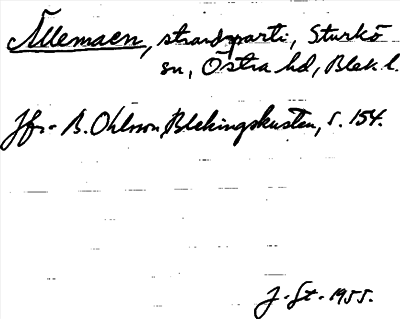 Ållemaen, strandparti, Sturkö
sn, Östra hd, Blek. l.
Jfr. B. Ohlsson, Blekingskusten, s. 154.
J. St. 1955.